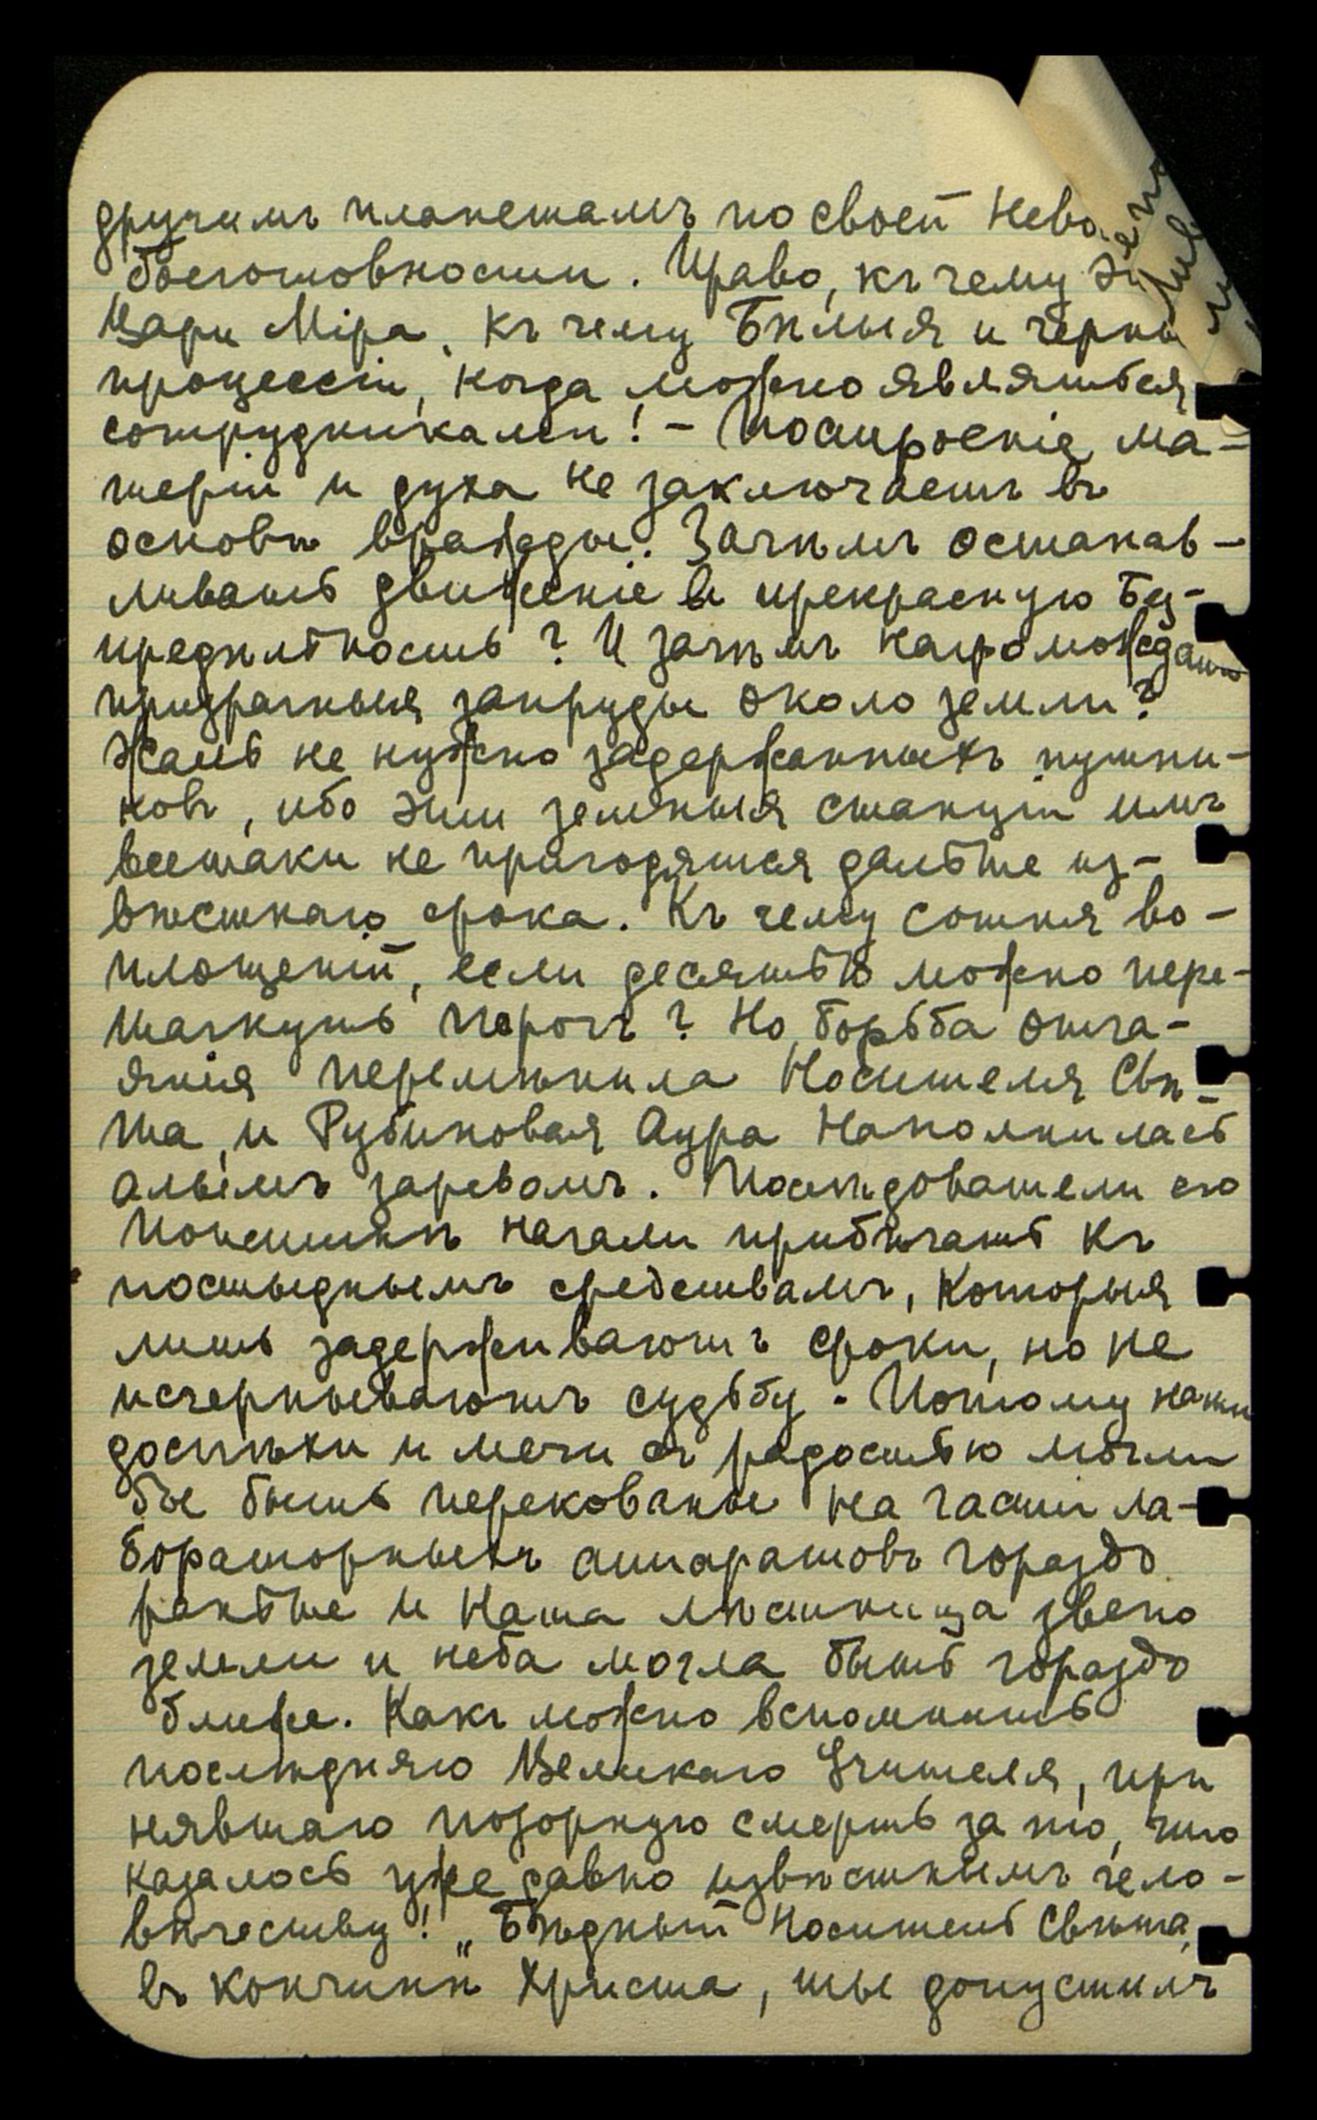 другимъ планетамъ по своей нево
боеготовности. Право, къ чему
Цари Міра, къ чему Бѣлыя и черны
процессіи, когда можно являться
сотрудниками! – Построеніе ма-
теріи и духа не заключаетъ въ
основѣ вражды. Зачѣмъ останав-
ливать движеніе въ прекрасную Без-
предѣльность? И зачѣмъ нагромождать
призрачныя запруды около земли?
Жаль не нужно задержанныхъ путни-
ковъ, ибо эти земныя станціи имъ
всетаки не пригодятся дальше из-
вѣстнаго срока. Къ чему сотня во-
площеній, если десятью можно пере-
шагнуть порогъ? Но борьба отча-
янія перемѣнила Носителя Свѣ-
та, и Рубиновая Аура Наполнилась
алымъ заревомъ. Послѣдователи его
поистинѣ начали прибѣгать къ
постыднымъ средствамъ, которыя
лишь задерживаютъ сроки, но не
исчерпываютъ судьбу. Потому наши
доспѣхи и мечи съ радостью могли
бы быть перекованы на части ла-
бораторныхъ аппаратовъ гораздо
раньше и Наша лѣстница звено
земли и неба могла быть гораздо
ближе. Какъ можно вспомнить
послѣдняго Великаго Учителя, при
нявшаго позорную смерть за то, что
казалось уже давно извѣстнымъ чело-
вѣчеству! „Бѣдный Носитель Свѣта,
въ кончинѣ Христа, ты допустилъ